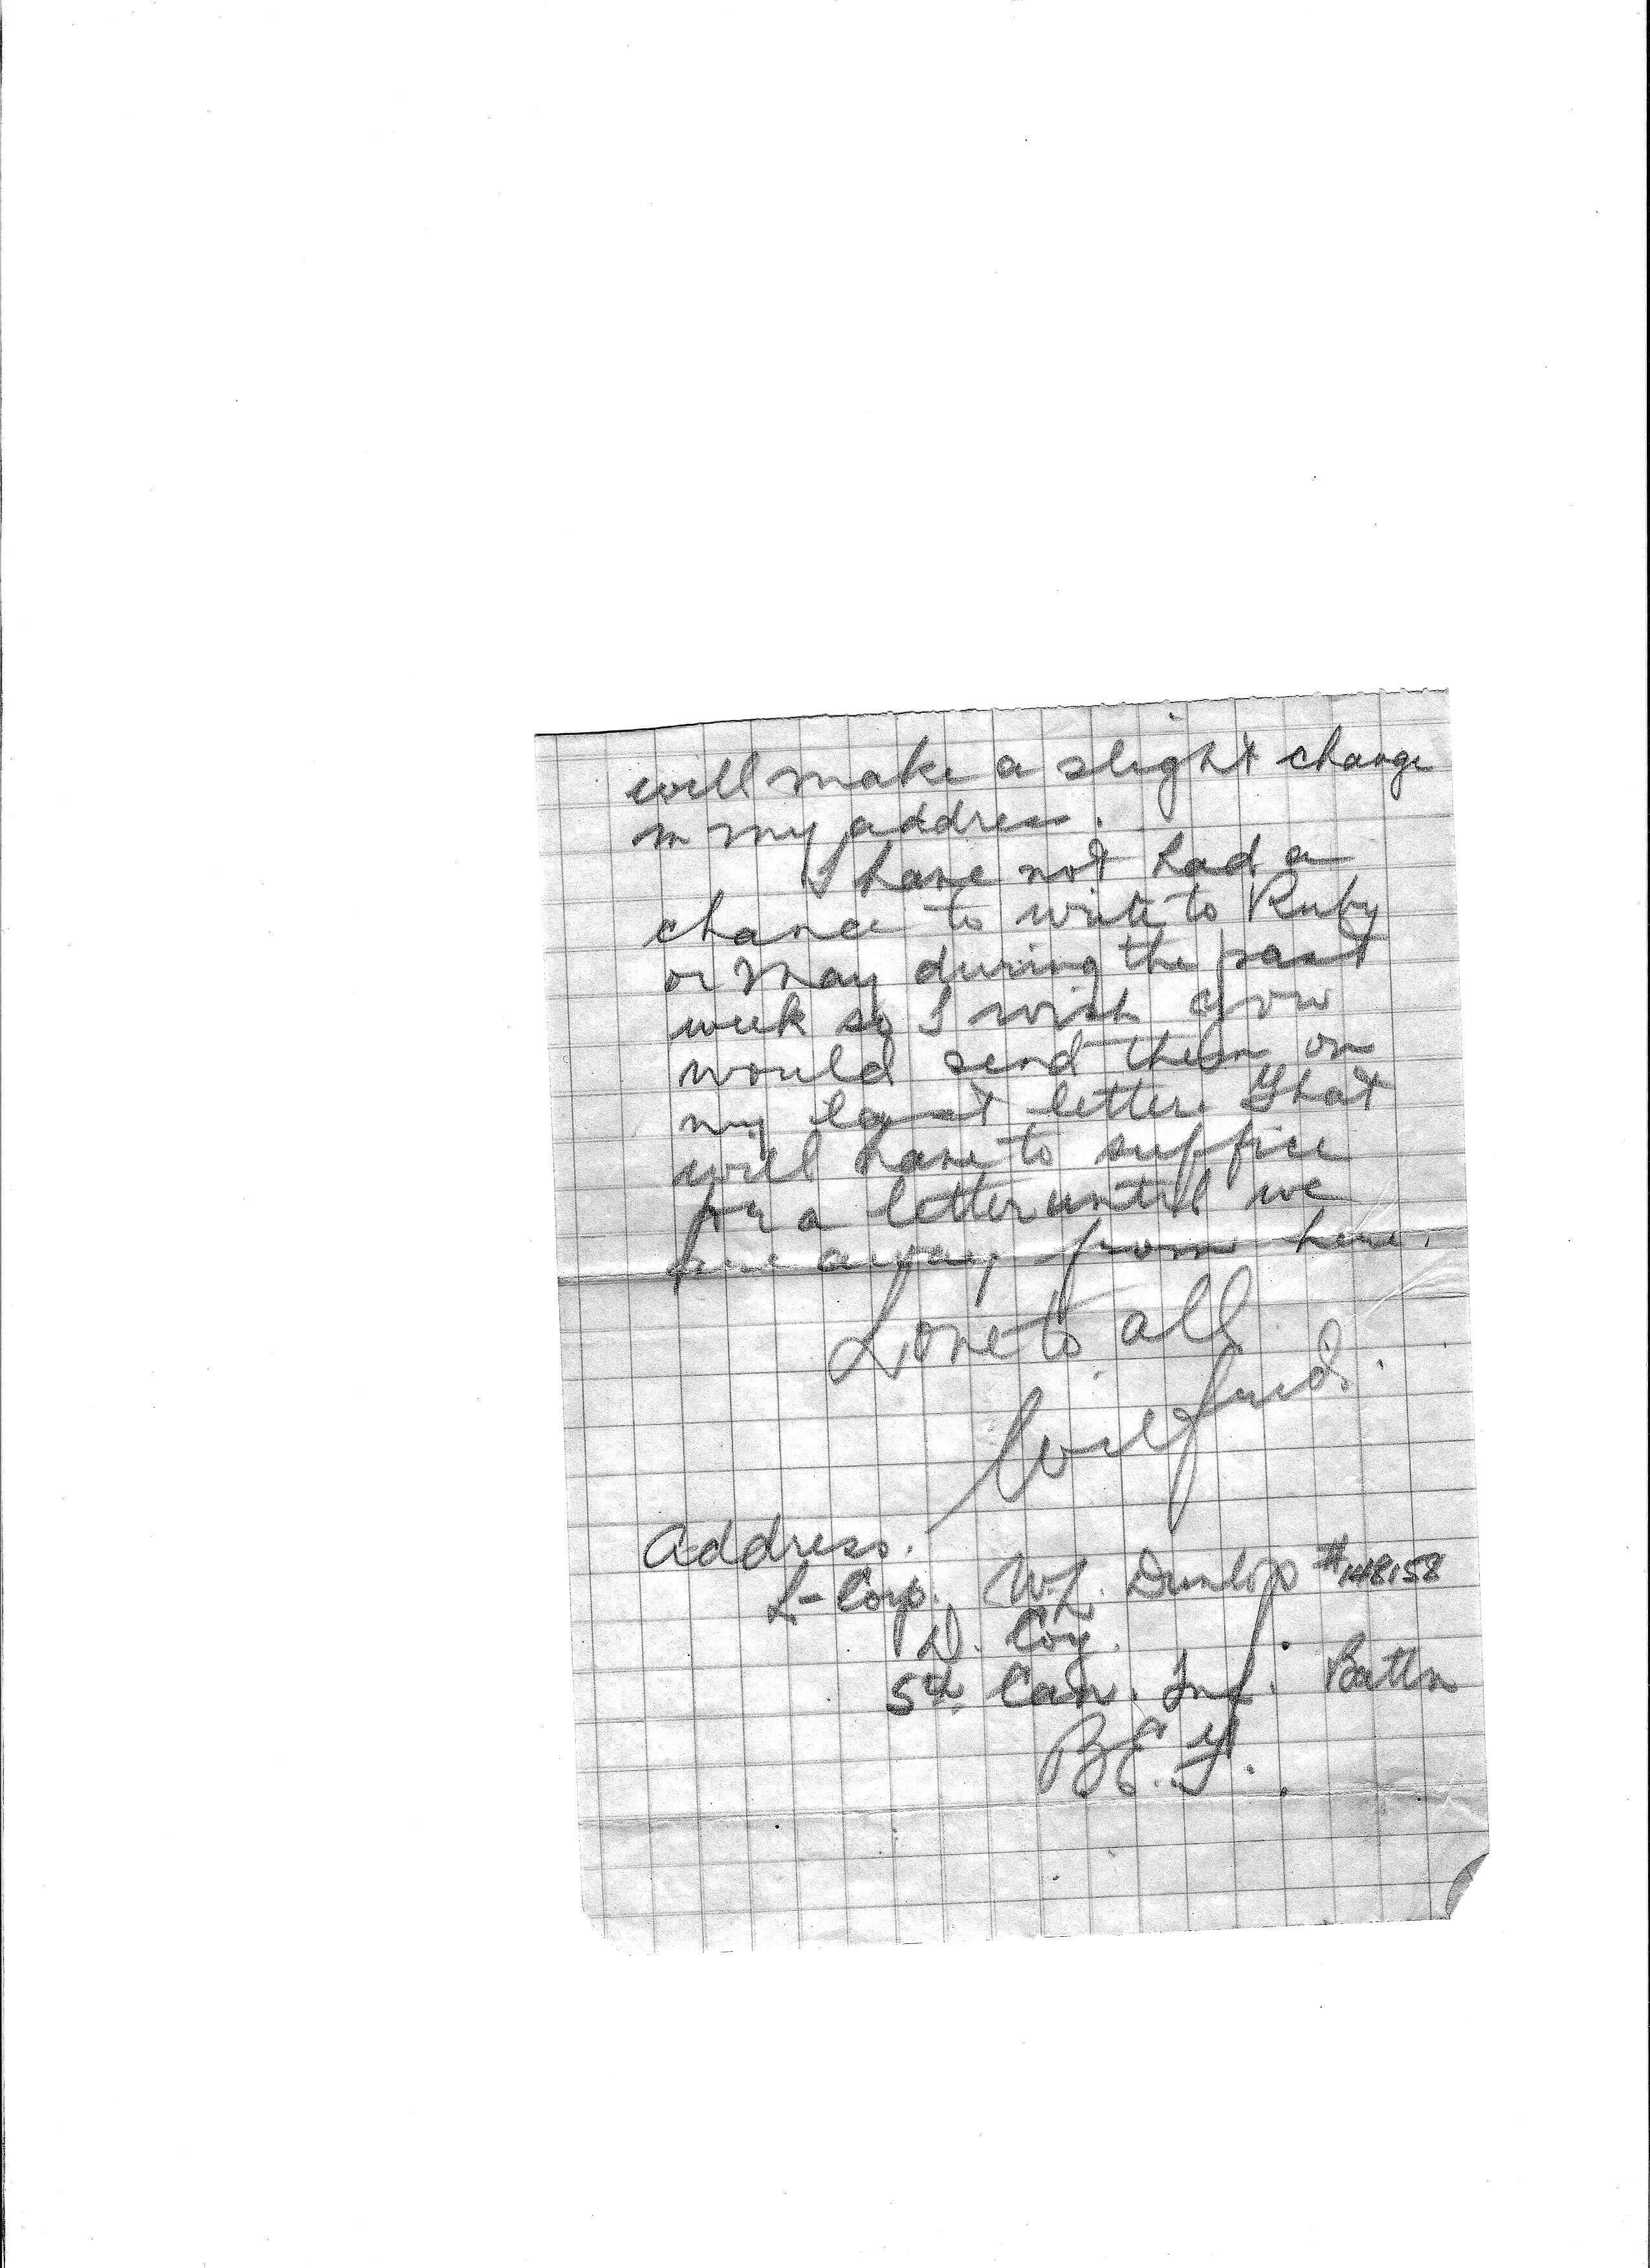 will make a slight change
in my address.
I have not had a
chance to write to Ruby
or May during the past
week so I wish you
would send them on
my last letter. That
will have to suffice
for a letter until we
are away from here.
Love to all
Wilfred.
Address.
L-Corp. W.L. Dunlop #148158
D. Coy.
5th Can. Inf. Battn
B.E.F.